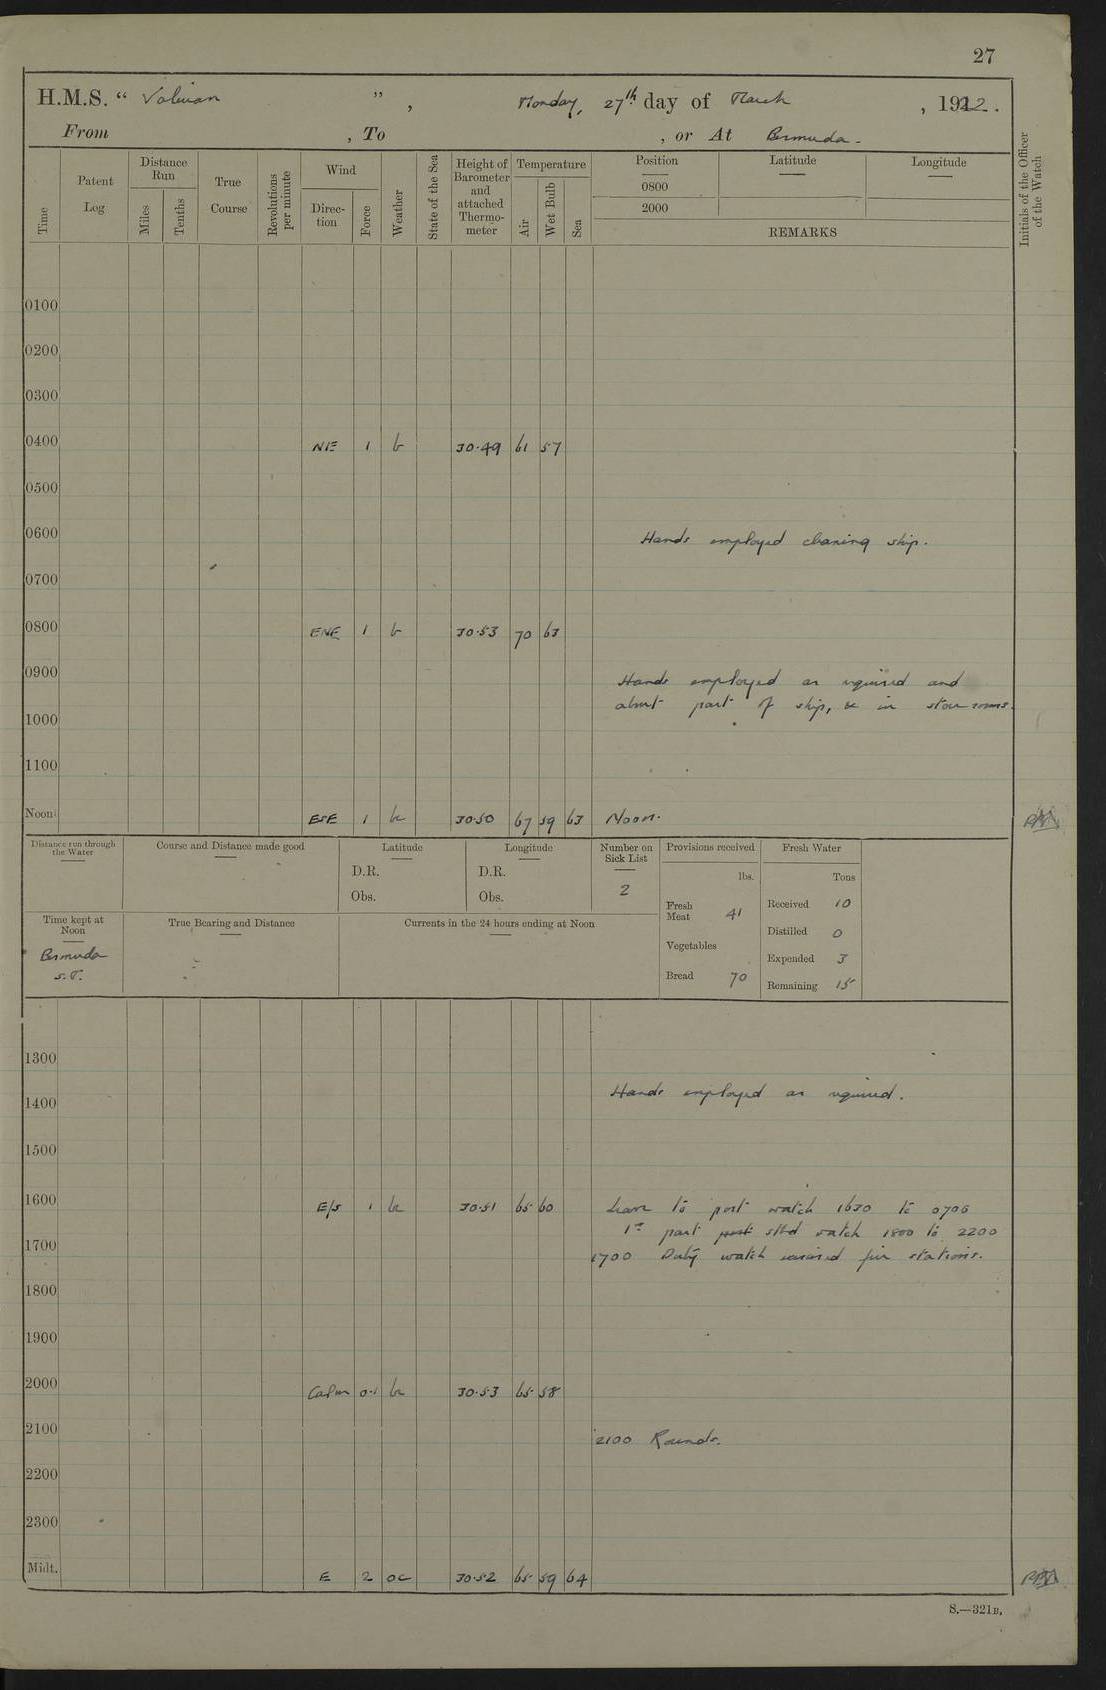 27
H.M.S. “ Valerian ” , Monday, 27th day of March , 1922.
From , To , or At Bermuda.
Time
Patent Log
Distance Run
Miles
Tenths
True Course
Revolutions per minute
Wind
Direction
Force
Weather
State of the Sea
Height of Barometer and attached Thermometer
Temperature
Air
Wet Bulb
Sea
Position
0800
2000
Latitude
Longitude
REMARKS
Initials of the Officer of the Watch
0100
0200
0300
0400 NE 1 b 30.49 61 57
0500
0600 Hands employed cleaning ship.
0700
0800 ENE 1 b 30.53 70 63
0900 Hands employed as required and
about part of ship, & in store rooms.
1000
1100
Noon ESE 1 bc 30.50 67 59 63 Noon.
Distance run through the Water
Course and Distance made good
Latitude
D.R.
Obs.
Longitude
D.R.
Obs.
Number on Sick List
2
Provisions received
lbs.
Fresh Meat 41
Vegetables
Bread 70
Fresh Water
Tons
Received 10
Distilled 0
Expended 3
Remaining 15
Time kept at Noon
Bermuda
S.T.
True Bearing and Distance
Currents in the 24 hours ending at Noon
1300
1400 Hands employed as required.
1500
1600 E/S 1 bc 30.51 65 60 Leave to port watch 1630 to 0700
1st part stbd watch 1800 to 2200
1700 1700 Duty watch exercised fire stations.
1800
1900
2000 Calm 0-1 bc 30.53 65 58
2100 2100 Rounds.
2200
2300
Midt. E 2 oc 30.52 65 59 64
S.—321B.